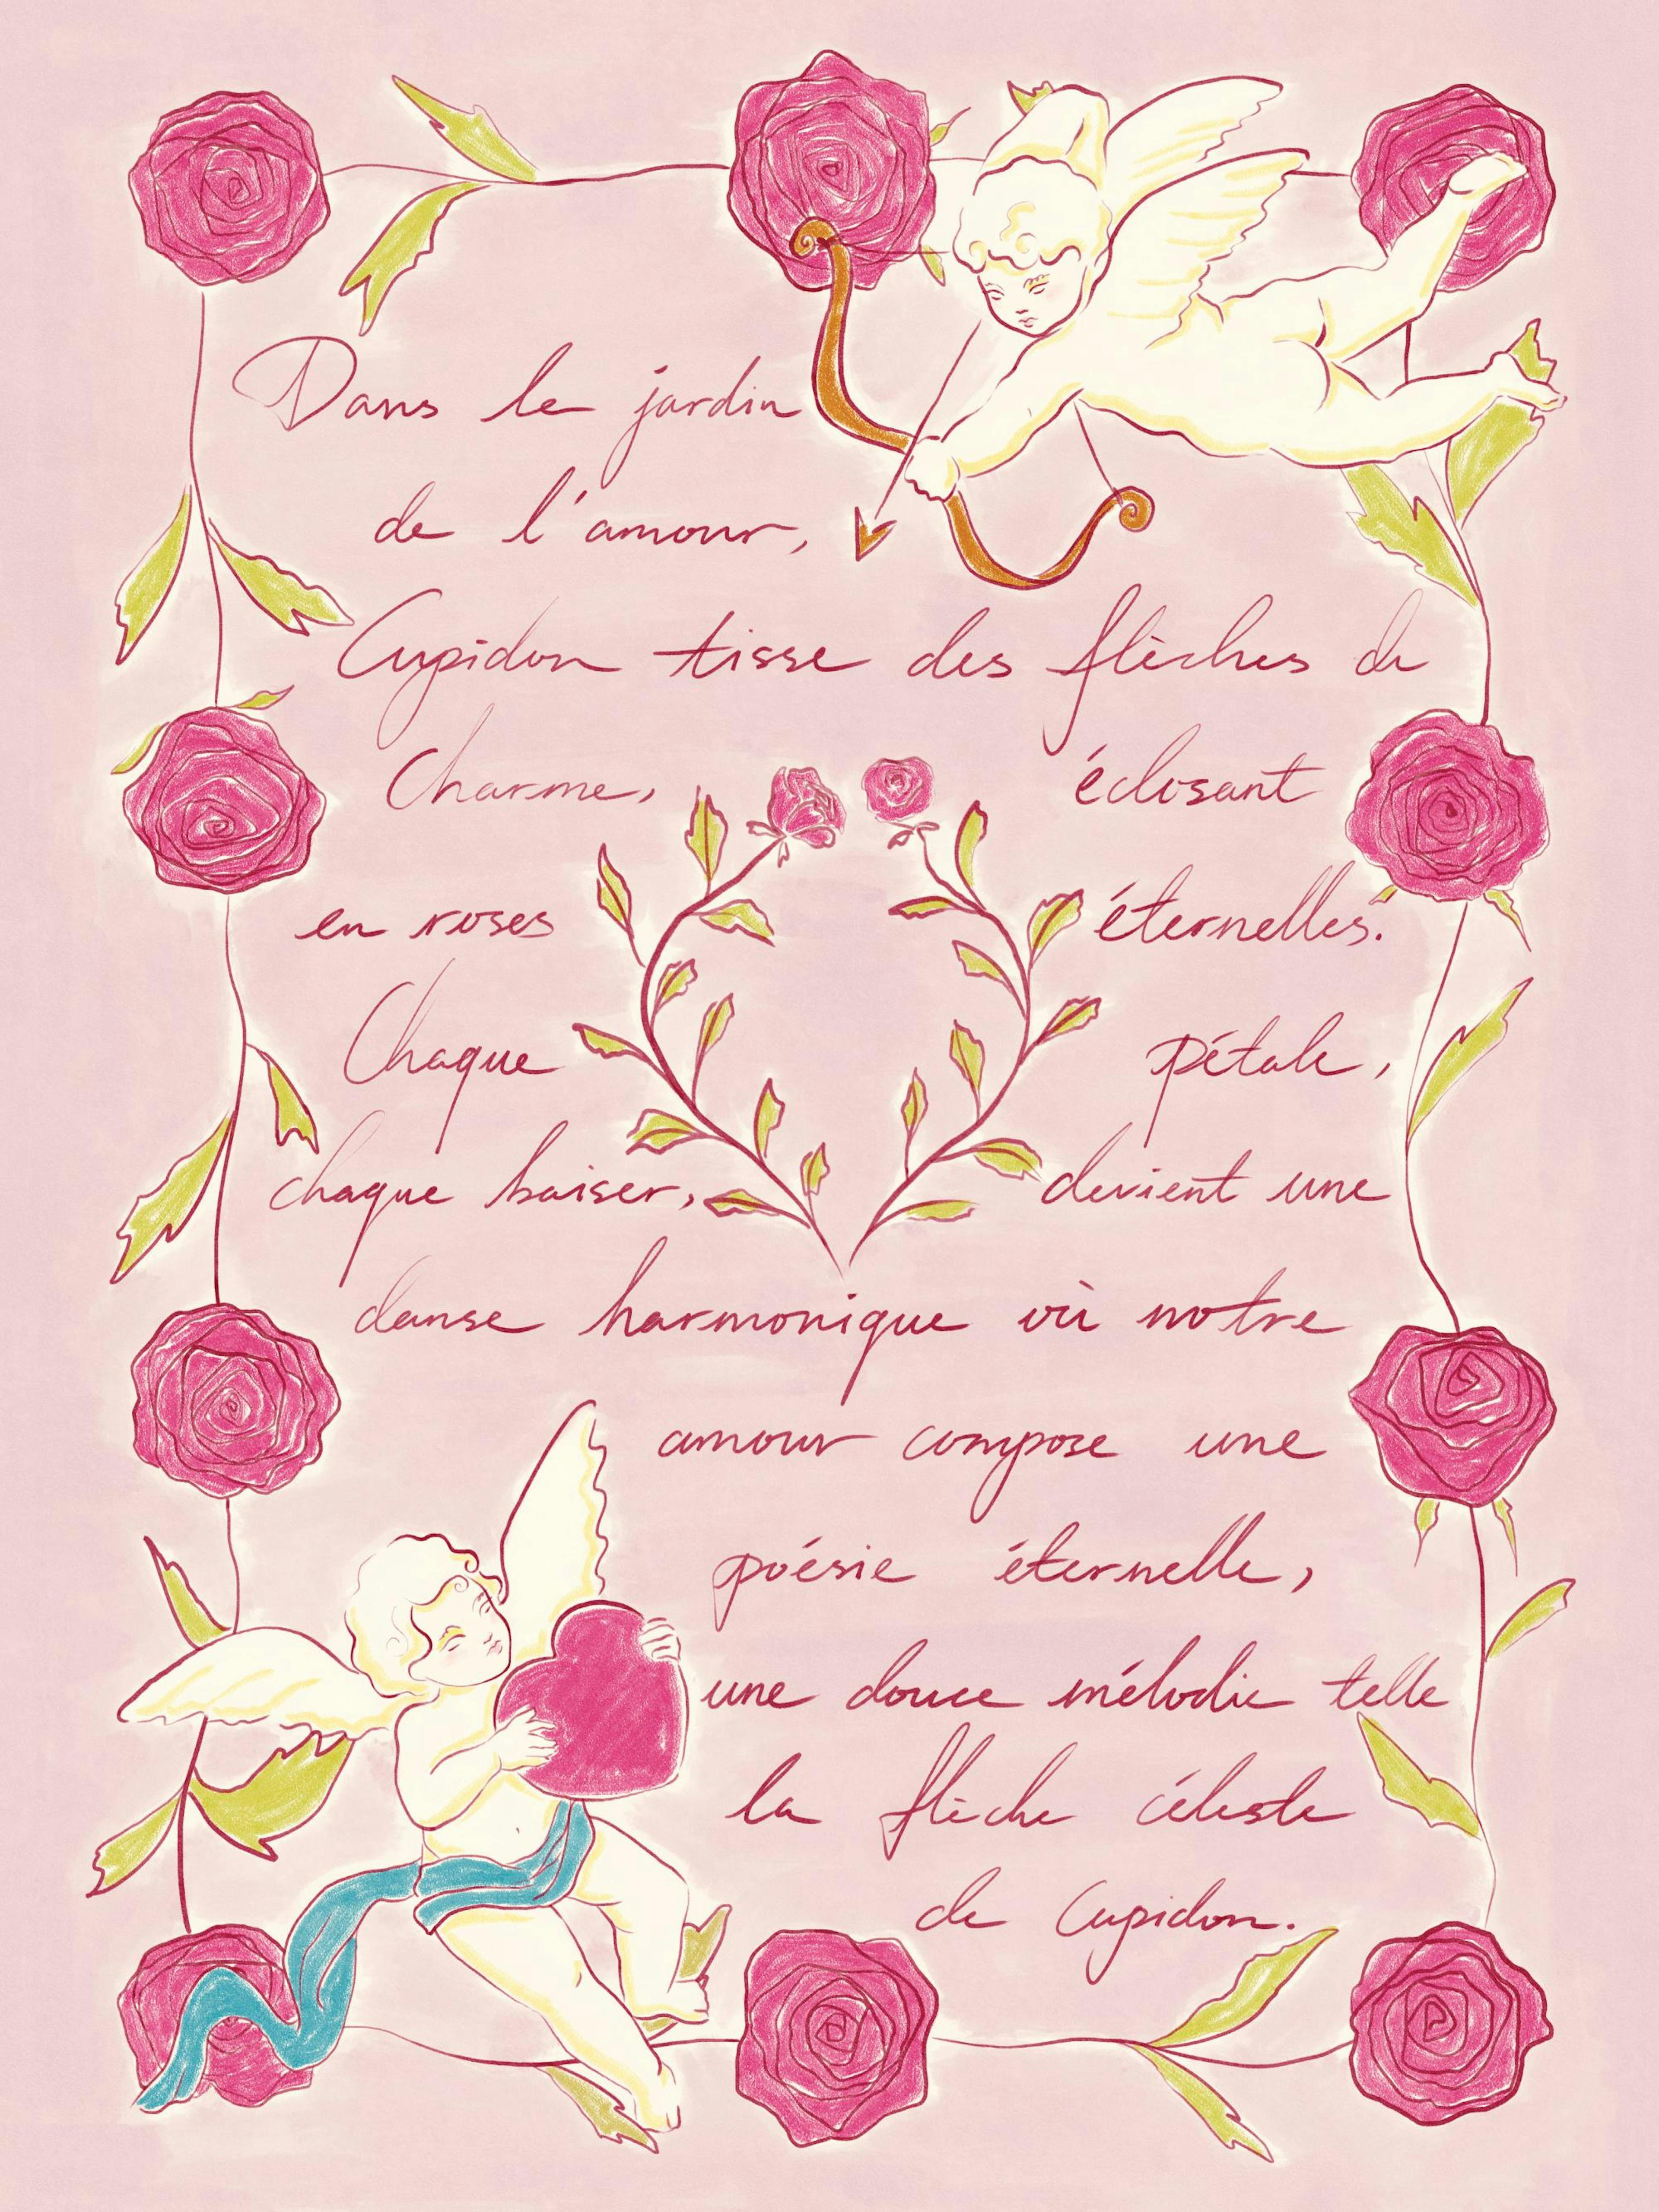 Dans le jardin
de l'amour,
Cupidon tisse des flèches de
Charme, éclosant
en roses éternelles.
Chaque pétale,
chaque baiser, devient une
danse harmonique où notre
amour compose une
poésie éternelle,
une douce mélodie telle
la flèche céleste
de Cupidon.